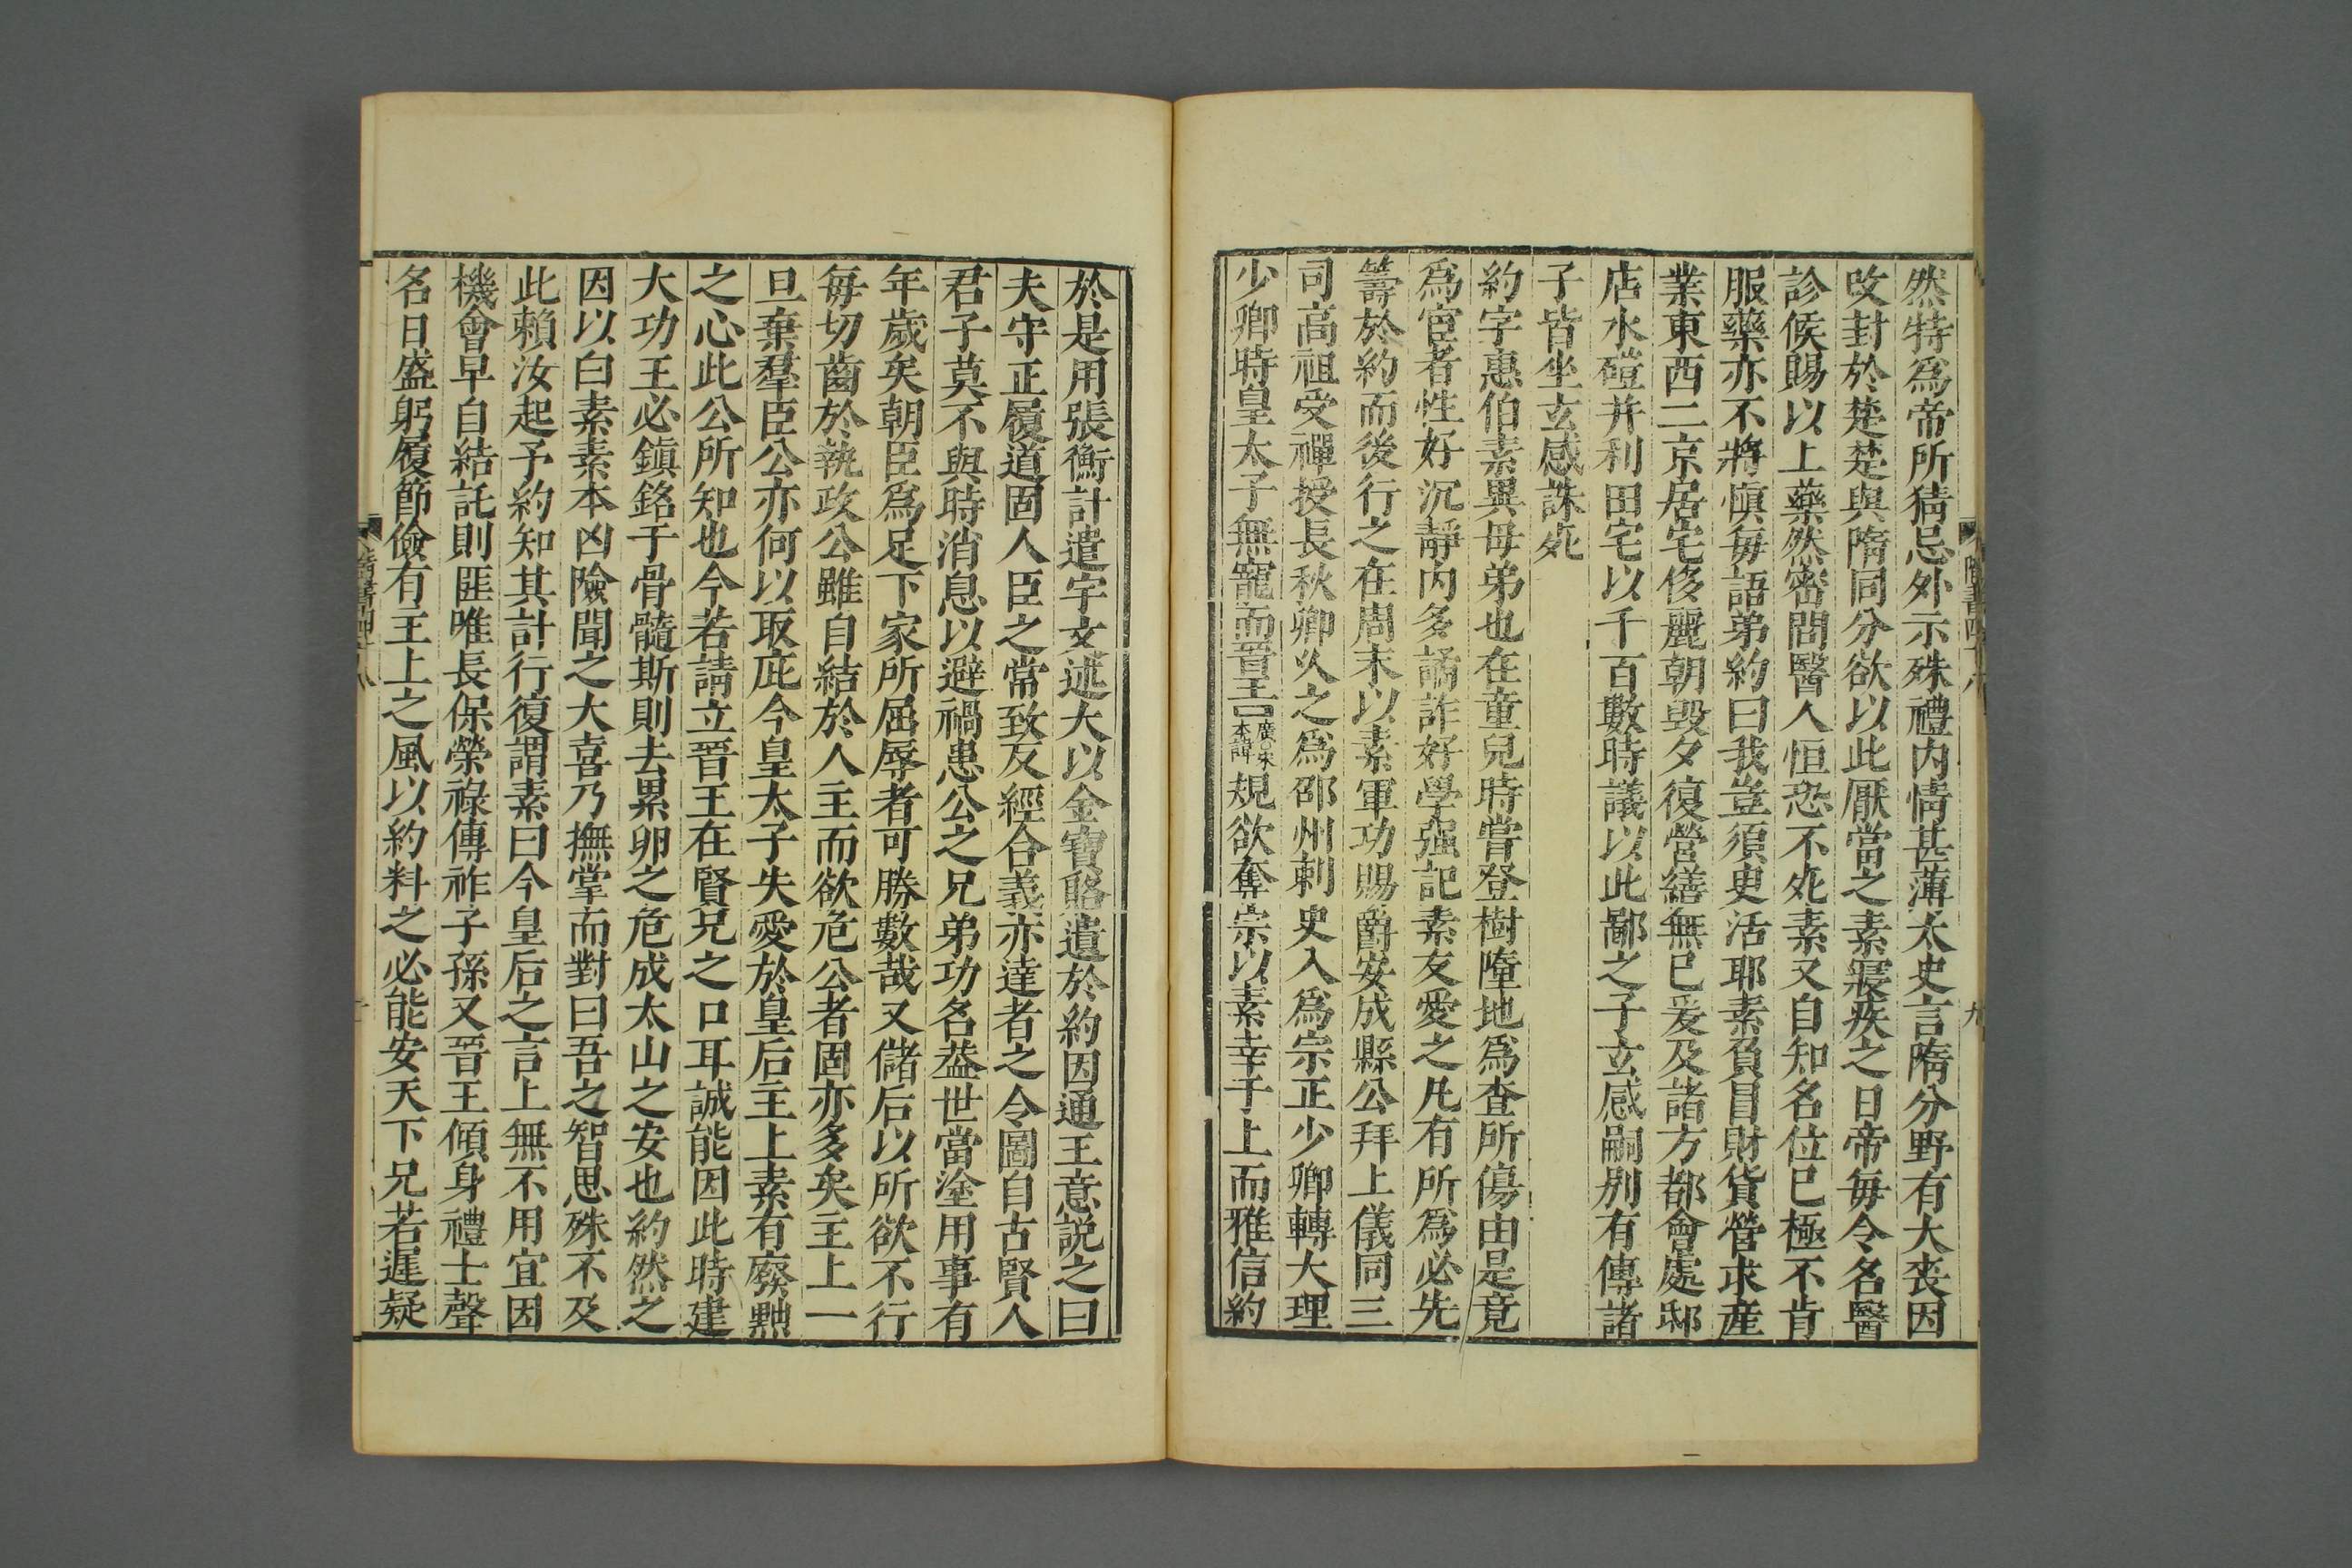 然特爲帝所猜忌外示殊禮内情甚薄太史言隋分野有大喪因
改封於楚楚與隋同分欲以此厭當之素寢疾之日帝每令名醫
診候賜以上藥然密問醫人恒恐不死素又自知名位已極不肯
服藥亦不將愼每語弟約曰我豈須更活耶素負冒財貨營求産
業東西二京居宅侈麗朝毀夕復營繕無已爰及諸方都會處邸
店水磑并利田宅以千百數時議以此鄙之子玄感嗣别有傳諸
子皆坐玄感誅死
約字惠伯素異母弟也在童兒時嘗登樹墮地爲查所傷由是竟
爲宦者性好沉靜内多譎詐好學强記素友愛之凡有所爲必先
籌於約而後行之在周末以素軍功賜爵安成縣公拜上儀同三
司高祖受禪授長秋卿久之爲邵州刺史入爲宗正少卿轉大理
少卿時皇太子無寵而晉王廣○宋本諱規欲奪宗以素幸于上而雅信約
隋書四十八
九
於是用張衡計遣宇文述大以金寶賂遺於約因通王意説之曰
夫守正履道固人臣之常致反經合義亦達者之令圖自古賢人
君子莫不與時消息以避禍患公之兄弟功名葢世當塗用事有
年歲矣朝臣爲足下家所屈辱者可勝數哉又儲后以所欲不行
每切齒於執政公雖自結於人主而欲危公者固亦多矣主上一
旦棄羣臣公亦何以取庇今皇太子失愛於皇后主上素有廢黜
之心此公所知也今若請立晉王在賢兄之口耳誠能因此時建
大功王必鎮銘于骨髓斯則去累卵之危成太山之安也約然之
因以白素素本凶險聞之大喜乃撫掌而對曰吾之智思殊不及
此賴汝起予約知其計行復謂素曰今皇后之言上無不用宜因
機會早自結託則匪唯長保榮祿傳祚子孫又晉王傾身禮士聲
名日盛躬履節儉有主上之風以約料之必能安天下兄若遲疑
隋書四十八